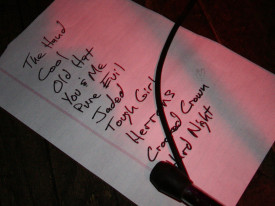 The Hand
Cool
Old Hat
You & Me
Pure Evil
Jaded
Tough Girl
Crooked Crown
Night